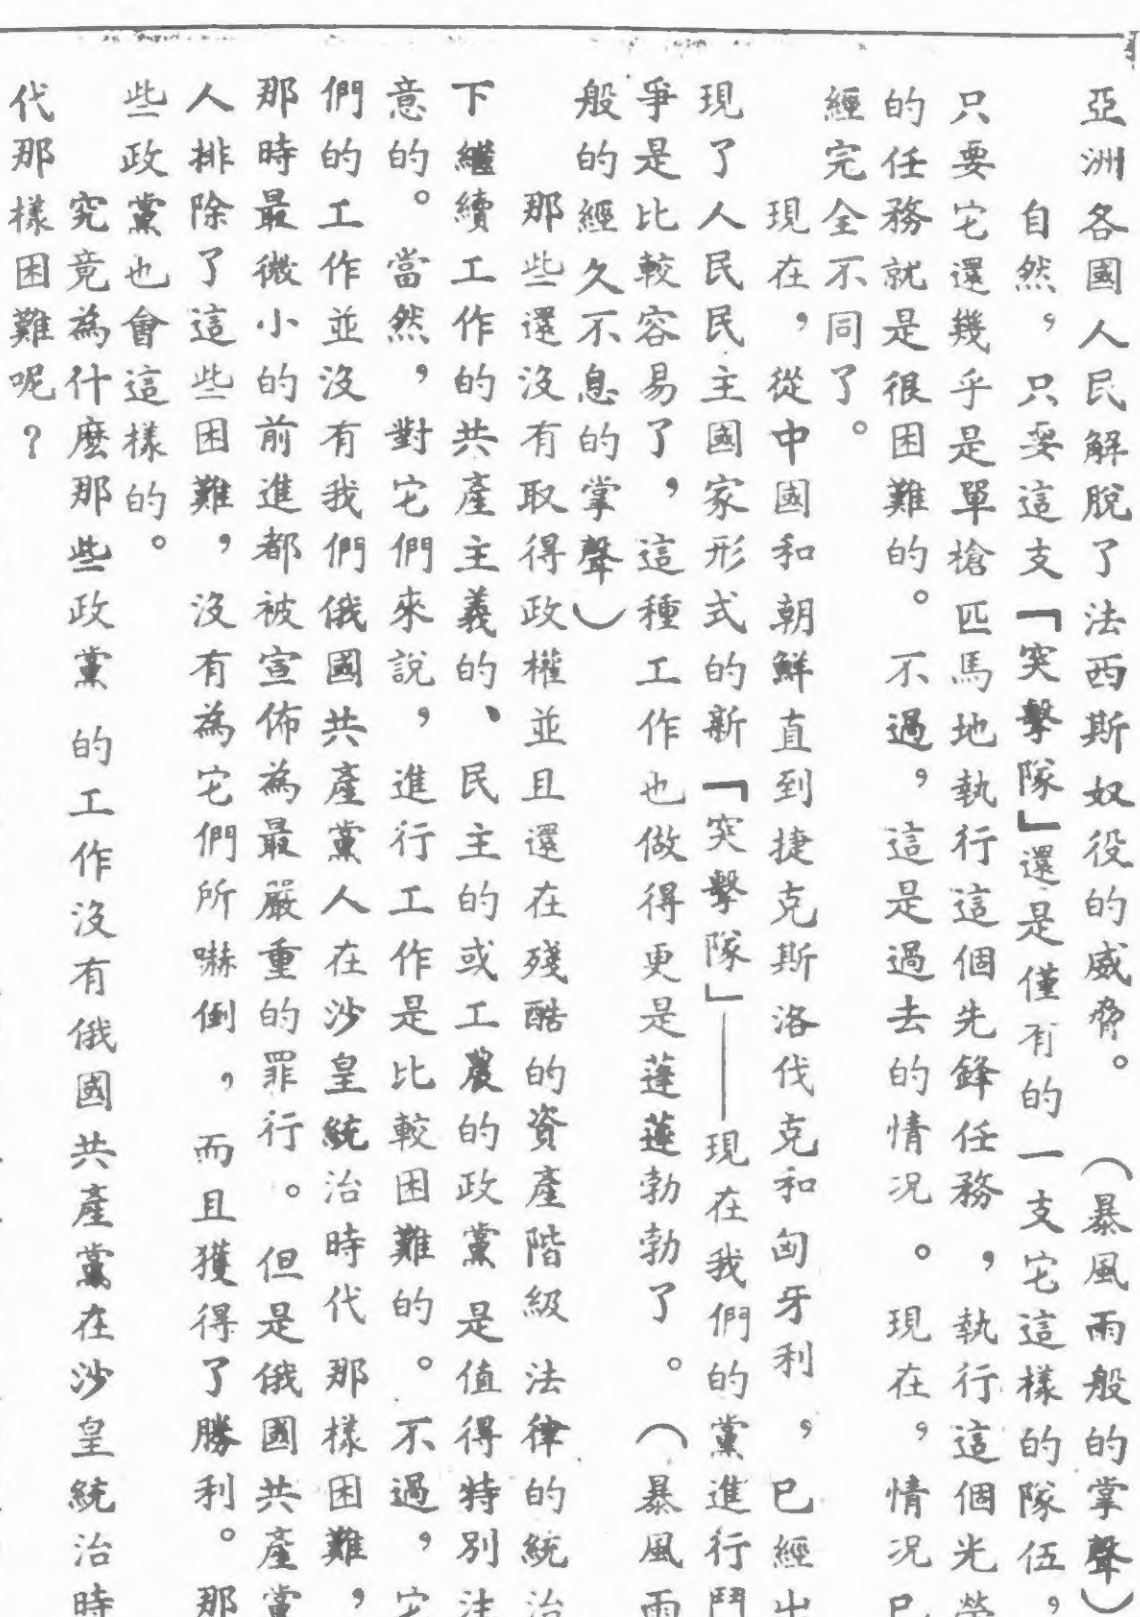 亞洲各國人民解脫了法西斯奴役的威脅。（暴風雨般的掌聲）
自然，只要這支「突擊隊」還是僅有的一支它這樣的隊伍，
只要它還幾乎是單槍匹馬地執行這個先鋒任務，執行這個光榮
的任務就是很困難的。不過，這是過去的情況。現在，情況已
經完全不同了。
現在，從中國和朝鮮直到捷克斯洛伐克和匈牙利，已經出
現了人民民主國家形式的新「突擊隊」——現在我們的黨進行鬥
爭是比較容易了，這種工作也做得更是蓬蓬勃勃了。（暴風雨
般的經久不息的掌聲）
那些還沒有取得政權並且還在殘酷的資產階級法律的統治
下繼續工作的共產主義的、民主的或工農的政黨是值得特別注
意的。當然，對它們來說，進行工作是比較困難的。不過，它
們的工作並沒有我們俄國共產黨人在沙皇統治時代那樣困難，
那時最微小的前進都被宣佈為最嚴重的罪行。但是俄國共產黨
人排除了這些困難，沒有為它們所嚇倒，而且獲得了勝利。那
些政黨也會這樣的。
究竟為什麼那些政黨的工作沒有俄國共產黨在沙皇統治時
代那樣困難呢？